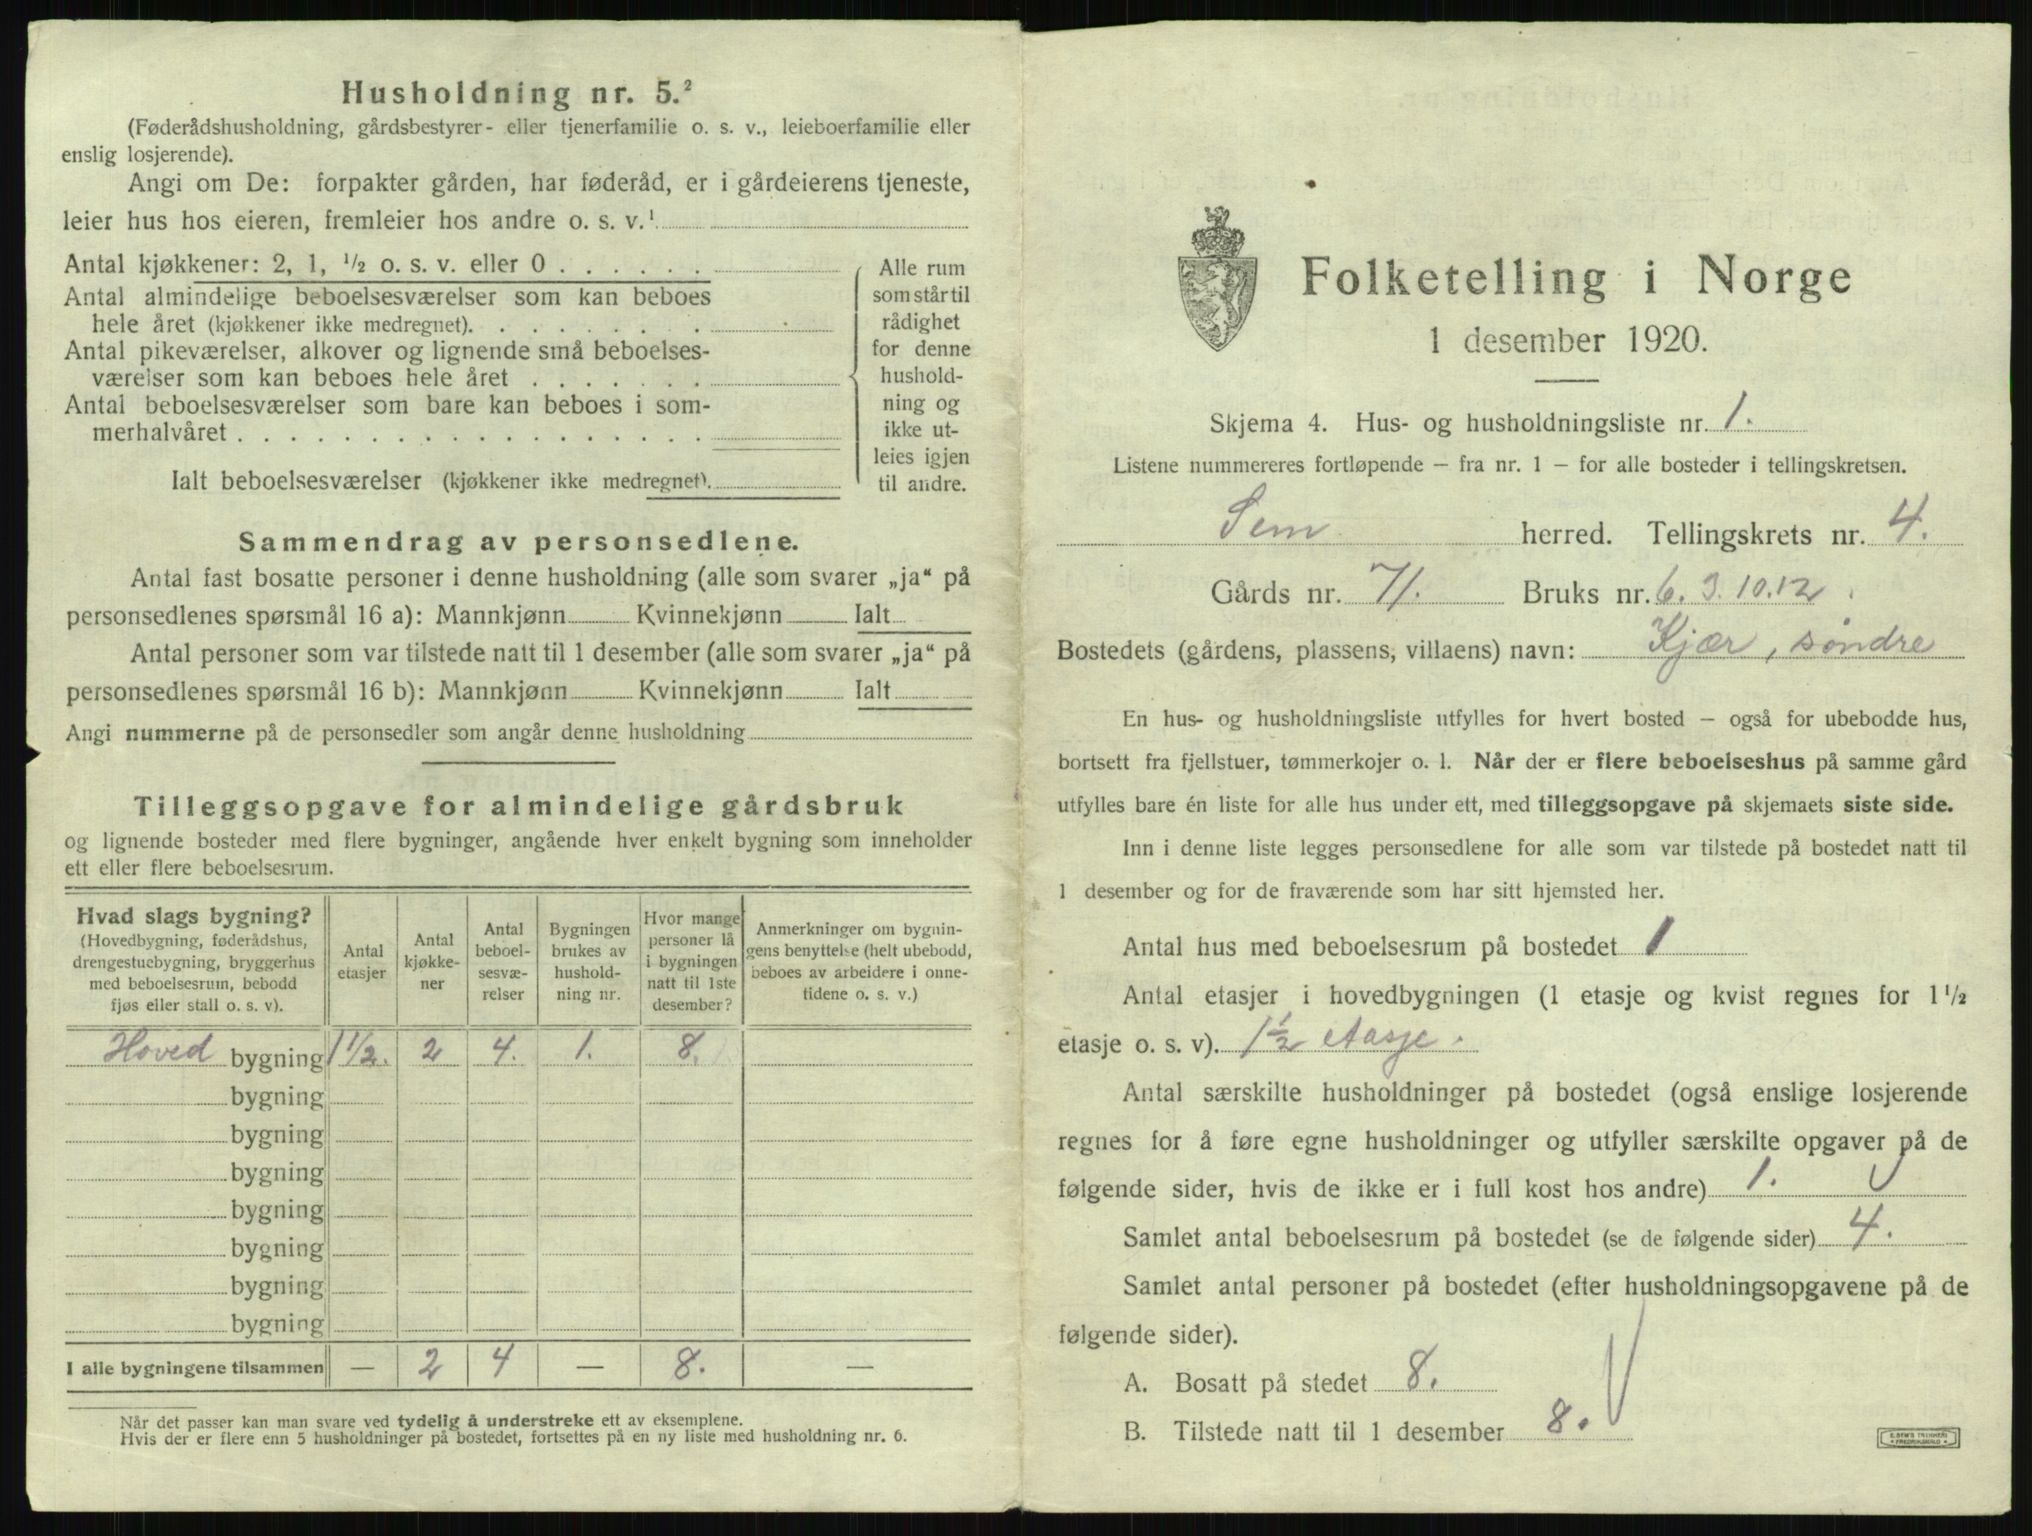 Husholdning nr. 5.²
(Føderådshusholdning, gårdsbestyrer- eller tjenerfamilie o. s. v., leieboerfamilie eller
enslig losjerende).
Angi om De: forpakter gården, har føderåd, er i gårdeierens tjeneste,
leier hus hos eieren, fremleier hos andre o. s. v.¹
Antal kjøkkener: 2, 1, ½ o. s. v. eller 0 . . . . . .
Antal almindelige beboelsesværelser som kan beboes
hele året (kjøkkener ikke medregnet). . . . . . . .
Antal pikeværelser, alkover og lignende små beboelses-
værelser som kan beboes hele året . . . . . . .
Antal beboelsesværelser som bare kan beboes i som-
merhalvåret . . . . . . . . . . . . . . . . . .
Ialt beboelsesværelser (kjøkkener ikke medregnet).
Alle rum
som står til
rådighet
for denne
hushold-
ning og
ikke ut-
leies igjen
til andre.
Sammendrag av personsedlene.
Antal fast bosatte personer i denne husholdning (alle som svarer „ja“ på
personsedlenes spørsmål 16 a): Mannkjønn Kvinnekjønn Ialt
Antal personer som var tilstede natt til 1 desember (alle som svarer „ja“ på
personsedlenes spørsmål 16 b): Mannkjønn Kvinnekjønn Ialt
Angi nummerne på de personsedler som angår denne husholdning
Tilleggsopgave for almindelige gårdsbruk
og lignende bosteder med flere bygninger, angående hver enkelt bygning som inneholder
ett eller flere beboelsesrum.
Hvad slags bygning?
(Hovedbygning, føderådshus,
drengestuebygning, bryggerhus
med beboelsesrum, bebodd
fjøs eller stall o. s. v).
Antal
etasjer
Antal
kjøkke-
ner
Antal
beboel-
sesvæ-
relser
Bygningen
brukes av
hushold-
ning nr.
Hvor mange
personer lå
i bygningen
natt til 1ste
desember?
Anmerkninger om bygnin-
gens benyttelse (helt ubebodd,
beboes av arbeidere i onne-
tidene o. s. v.)
Hoved bygning 1 1/2. 2 4. 1. 8.
bygning
bygning
bygning
bygning
bygning
bygning
bygning
I alle bygningene tilsammen — 2 4 — 8. —
Når det passer kan man svare ved tydelig å understreke ett av eksemplene.
Hvis der er flere enn 5 husholdninger på bostedet, fortsettes på en ny liste med husholdning nr. 6.
Folketelling i Norge
1 desember 1920.
Skjema 4. Hus- og husholdningsliste nr. 1.
Listene nummereres fortløpende – fra nr. 1 – for alle bosteder i tellingskretsen.
Sem herred. Tellingskrets nr. 4.
Gårds nr. 71. Bruks nr. 6. 3. 10. 12.
Bostedets (gårdens, plassens, villaens) navn: Kjær, søndre
En hus- og husholdningsliste utfylles for hvert bosted – også for ubebodde hus,
bortsett fra fjellstuer, tømmerkojer o. l. Når der er flere beboelseshus på samme gård
utfylles bare én liste for alle hus under ett, med tilleggsopgave på skjemaets siste side.
Inn i denne liste legges personsedlene for alle som var tilstede på bostedet natt til
1 desember og for de fraværende som har sitt hjemsted her.
Antal hus med beboelsesrum på bostedet 1
Antal etasjer i hovedbygningen (1 etasje og kvist regnes for 1 ½
etasje o. s. v). 1 ½ etasje.
Antal særskilte husholdninger på bostedet (også enslige losjerende
regnes for å føre egne husholdninger og utfyller særskilte opgaver på de
følgende sider, hvis de ikke er i full kost hos andre) 1.
Samlet antal beboelsesrum på bostedet (se de følgende sider) 4.
Samlet antal personer på bostedet (efter husholdningsopgavene på de
følgende sider).
A. Bosatt på stedet 8.
B. Tilstede natt til 1 desember 8.